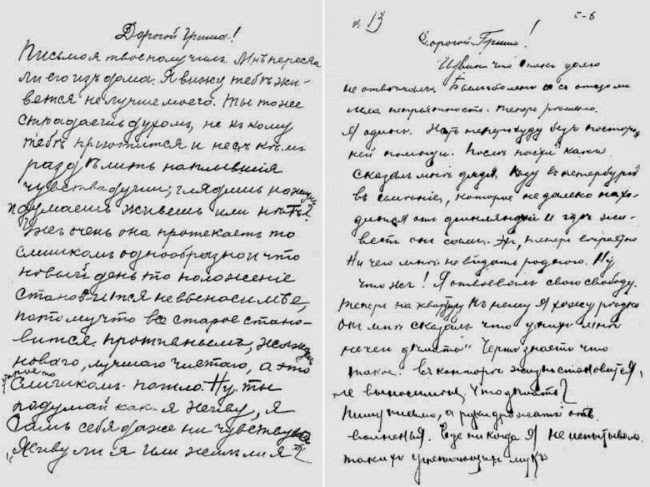 Дорогой Гриша!
Письмо я твое получил. Мнѣ пересла-
ли его изъ дома. Я вижу тебѣ жи-
вется не лучше моего. Ты тоже
страдаешь духомъ, не къ кому
тебѣ приютится и не съ кѣмъ
раздѣлить наплывшія
чувства души; глядишь на жизнь
и думаешь живешь или нѣтъ?
Ужъ очень она протекаетъ то
слишкомъ однообразно и что
новый день то положеніе
становится невыносимѣе,
потому что все старое стано-
вится противнымъ, жаждешь
новаго, лучшаго, чистаго, а это
старое-то
слишкомъ пошло. Ну ты
подумай какъ я живу, я
самъ себя даже не чувствую
„Живу ли я или жилъ ли я"?
13
5-6
Дорогой Гриша!
Извини что я такъ долго
не отвечалъ. Была со отцомъ
неприятность. Теперь решено.
Я одинъ. Жить теперь буду безъ посторон-
ней помощи. Послѣ пасхи какъ
сказалъ мнѣ дядя, еду въ петербургъ
въ имѣние, которое недалеко нахо-
дится отъ финляндии и где жи-
ветъ он самъ. Эх, теперь вероятно
Ни чего мнѣ не видать родного. Ну
что жъ! Я отвоевалъ свою свободу.
Теперь на квартиру къ нему я хожу редко
он мнѣ сказалъ что у них мнѣ
нечего дѣлать. Чертъ знаетъ что
такое. Въ конторе жить становится
не выносимо. Что делать?
Пишу письмо, а руки дрожатъ отъ
волненья. Еще никогда я не испытывалъ
таких угнетающих мукъ